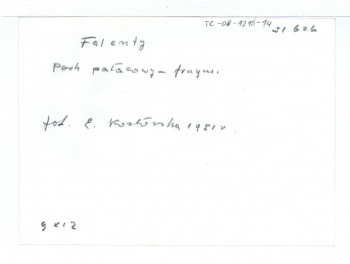 TC-08-1215-14 51 606
Falenty
Park pałacowy – fragm.
fot. E. Kozłowska 1951 r.
9 x 12